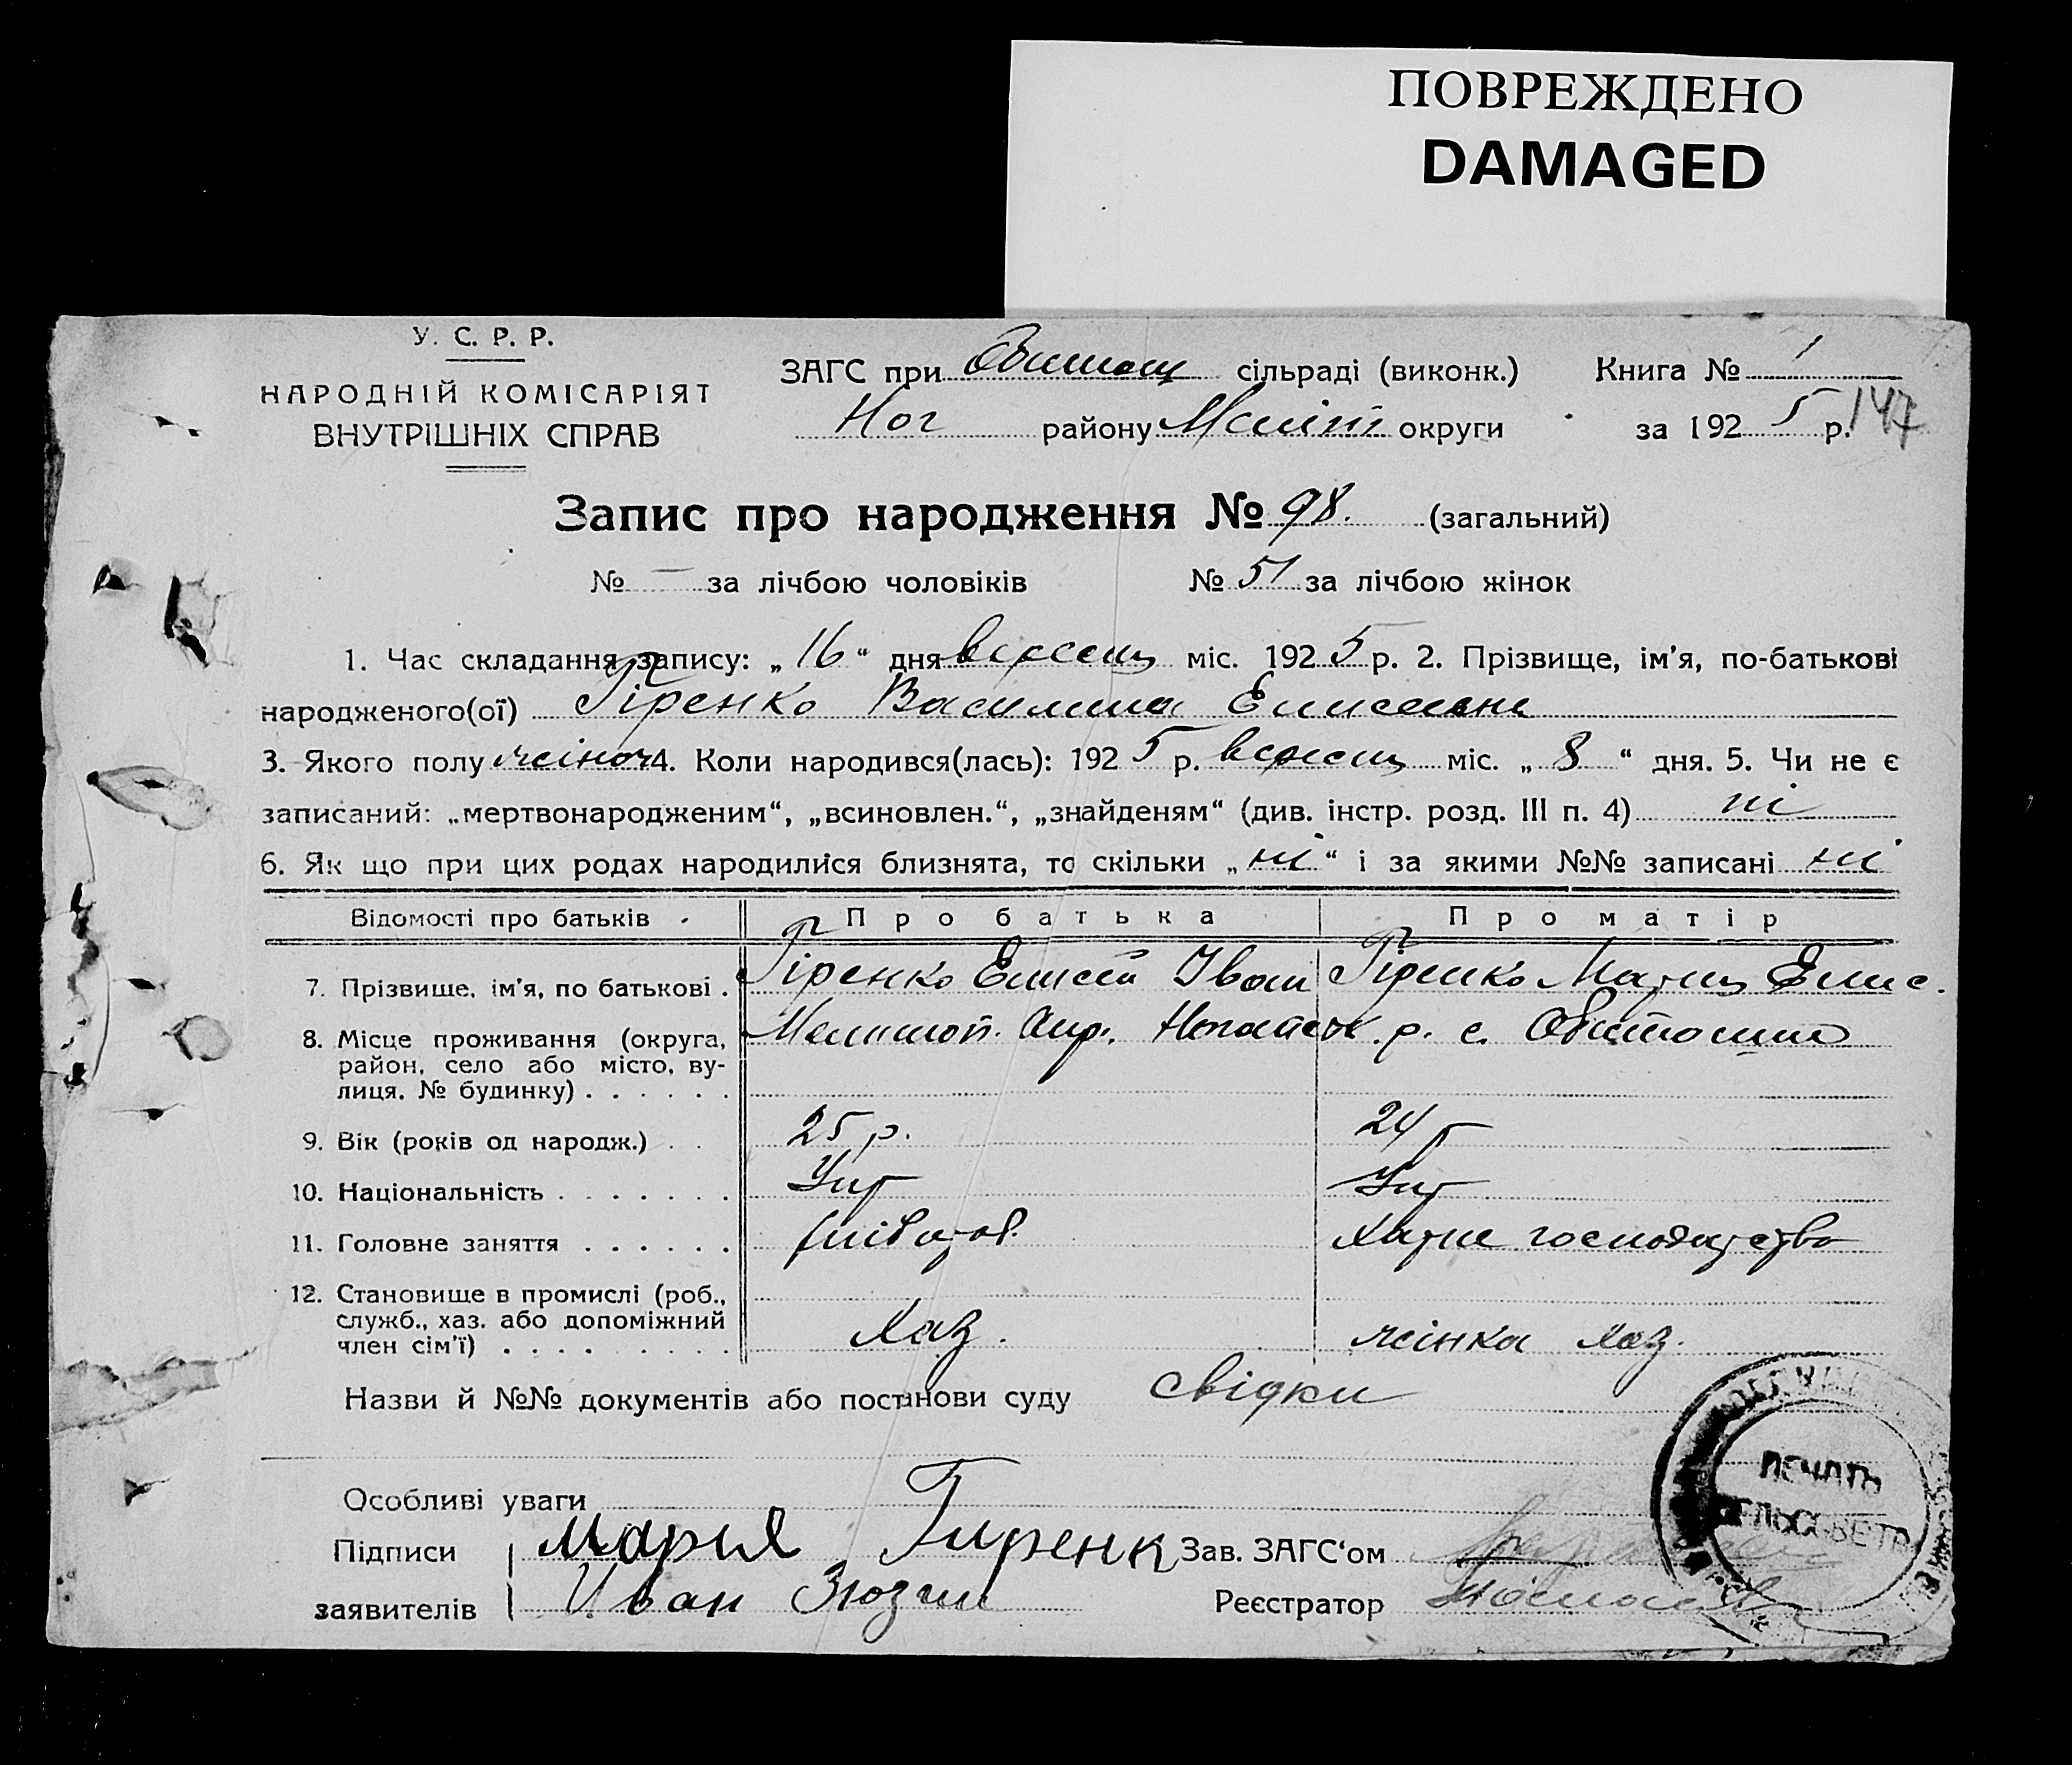 ПОВРЕЖДЕНО
DAMAGED
У. С. Р. Р.
НАРОДНІЙ КОМІСАРІЯТ
ВНУТРІШНІХ СПРАВ
ЗАГС при сільраді (виконк.) Книга № 1
Ног району Меліт округи за 1925 р. 147
Запис про народження № 98. (загальний)
№ — за лічбою чоловіків № 51 за лічбою жінок
1. Час складання запису: „16“ дня вересня міс. 1925 р. 2. Прізвище, ім'я, по-батькові
народженого(ої) Гіренко Василина
3. Якого полу жіноч 4. Коли народився(лась): 1925 р. вересня міс. „8“ дня. 5. Чи не є
записаний: „мертвонародженим“, „всиновлен.“, „знайденям“ (див. інстр. розд. III п. 4) ні
6. Як що при цих родах народилися близнята, то скільки „ні“ і за якими №№ записані ні
Відомості про батьків Про батька Про матір
7. Прізвище, ім'я, по батькові . Гіренко Елисей Іван Гіренко Мария Елис.
8. Місце проживання (округа, Мелитоп. Окр. р. с. Обиточно
район, село або місто, ву-
лиця, № будинку) . . . . . .
9. Вік (років од народж.) . . 25 р. 24 р
10. Національність . . . . . . . Укр Укр
11. Головне заняття . . . . . . Хатне господарство
12. Становище в промислі (роб.,
служб., хаз. або допоміжний
член сім'ї) . . . . . . . . . Хаз. жінка хаз.
Назви й №№ документів або постанови суду свідки
Особливі уваги
Підписи Мария Гиренк Зав. ЗАГС'ом
заявителів Иван Зюзин Реєстратор
ПЕЧАТЬ
СЕЛЬСОВЕТА